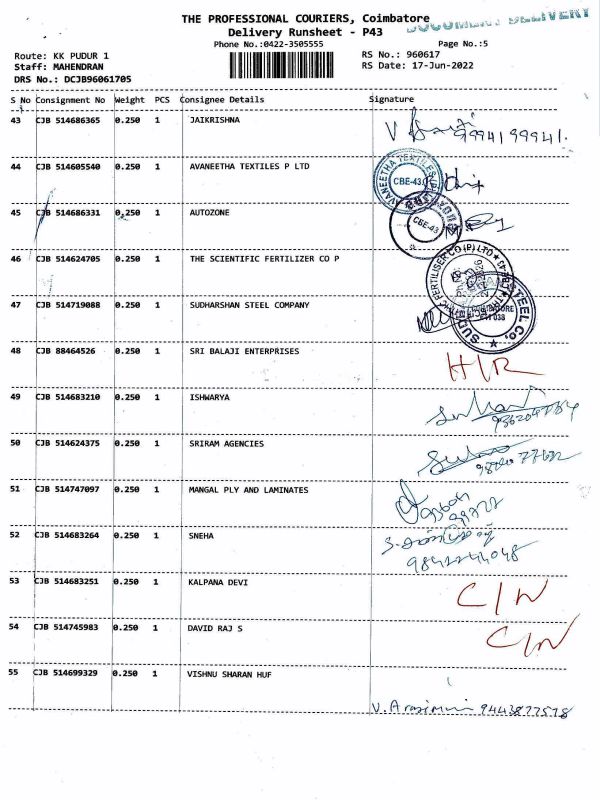 THE PROFESSIONAL COURIERS, Coimbatore
DOCUMENT DELIVERY
Delivery Runsheet - P43
Phone No.:0422-3505555
Page No.:5
Route: KK PUDUR 1
RS No.: 960617
Staff: MAHENDRAN
RS Date: 17-Jun-2022
DRS No.: DCJB96061705
S No Consignment No Weight PCS Consignee Details Signature
43 CJB 514686365 0.250 1 JAIKRISHNA
9994199941.
44 CJB 514605540 0.250 1 AVANEETHA TEXTILES P LTD
CBE-43
45 CJB 514686331 0.250 1 AUTOZONE
CBE-43
46 CJB 514624705 0.250 1 THE SCIENTIFIC FERTILIZER CO P
FERTILISER CO (P) LTD
47 CJB 514719088 0.250 1 SUDHARSHAN STEEL COMPANY
STEEL CO.
48 CJB 88464526 0.250 1 SRI BALAJI ENTERPRISES
H/R
49 CJB 514683210 0.250 1 ISHWARYA
50 CJB 514624375 0.250 1 SRIRAM AGENCIES
51 CJB 514747097 0.250 1 MANGAL PLY AND LAMINATES
52 CJB 514683264 0.250 1 SNEHA
9842244048
53 CJB 514683251 0.250 1 KALPANA DEVI
C/N
54 CJB 514745983 0.250 1 DAVID RAJ S
C/N
55 CJB 514699329 0.250 1 VISHNU SHARAN HUF
9443877578